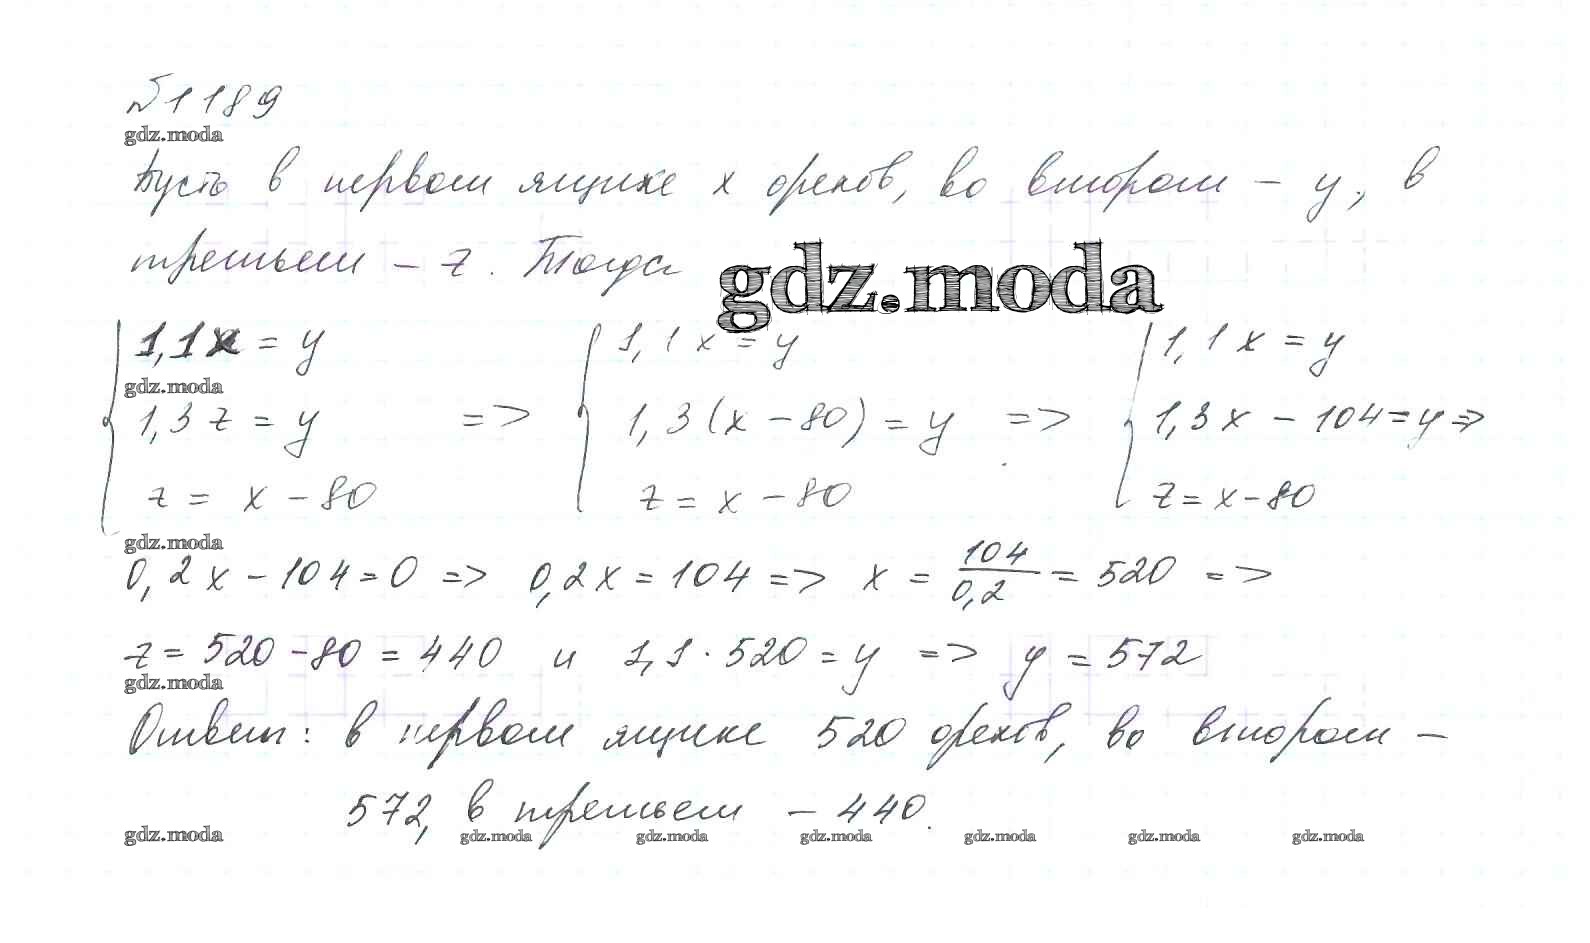 №1189
gdz.moda
Пусть в первом ящике x орехов, во втором – y, в
третьем – z. Тогда
gdz.moda
1,1x = y
gdz.moda
1,3z = y
z = x – 80
=>
1,1x = y
1,3(x – 80) = y
z = x – 80
=>
1,1x = y
1,3x – 104 = y =>
z = x – 80
gdz.moda
0,2x – 104 = 0 => 0,2x = 104 => x = 104/0,2 = 520 =>
z = 520 – 80 = 440 и 1,1 · 520 = y => y = 572
gdz.moda
Ответ: в первом ящике 520 орехов, во втором –
572, в третьем – 440.
gdz.moda gdz.moda gdz.moda gdz.moda gdz.moda gdz.moda gdz.moda